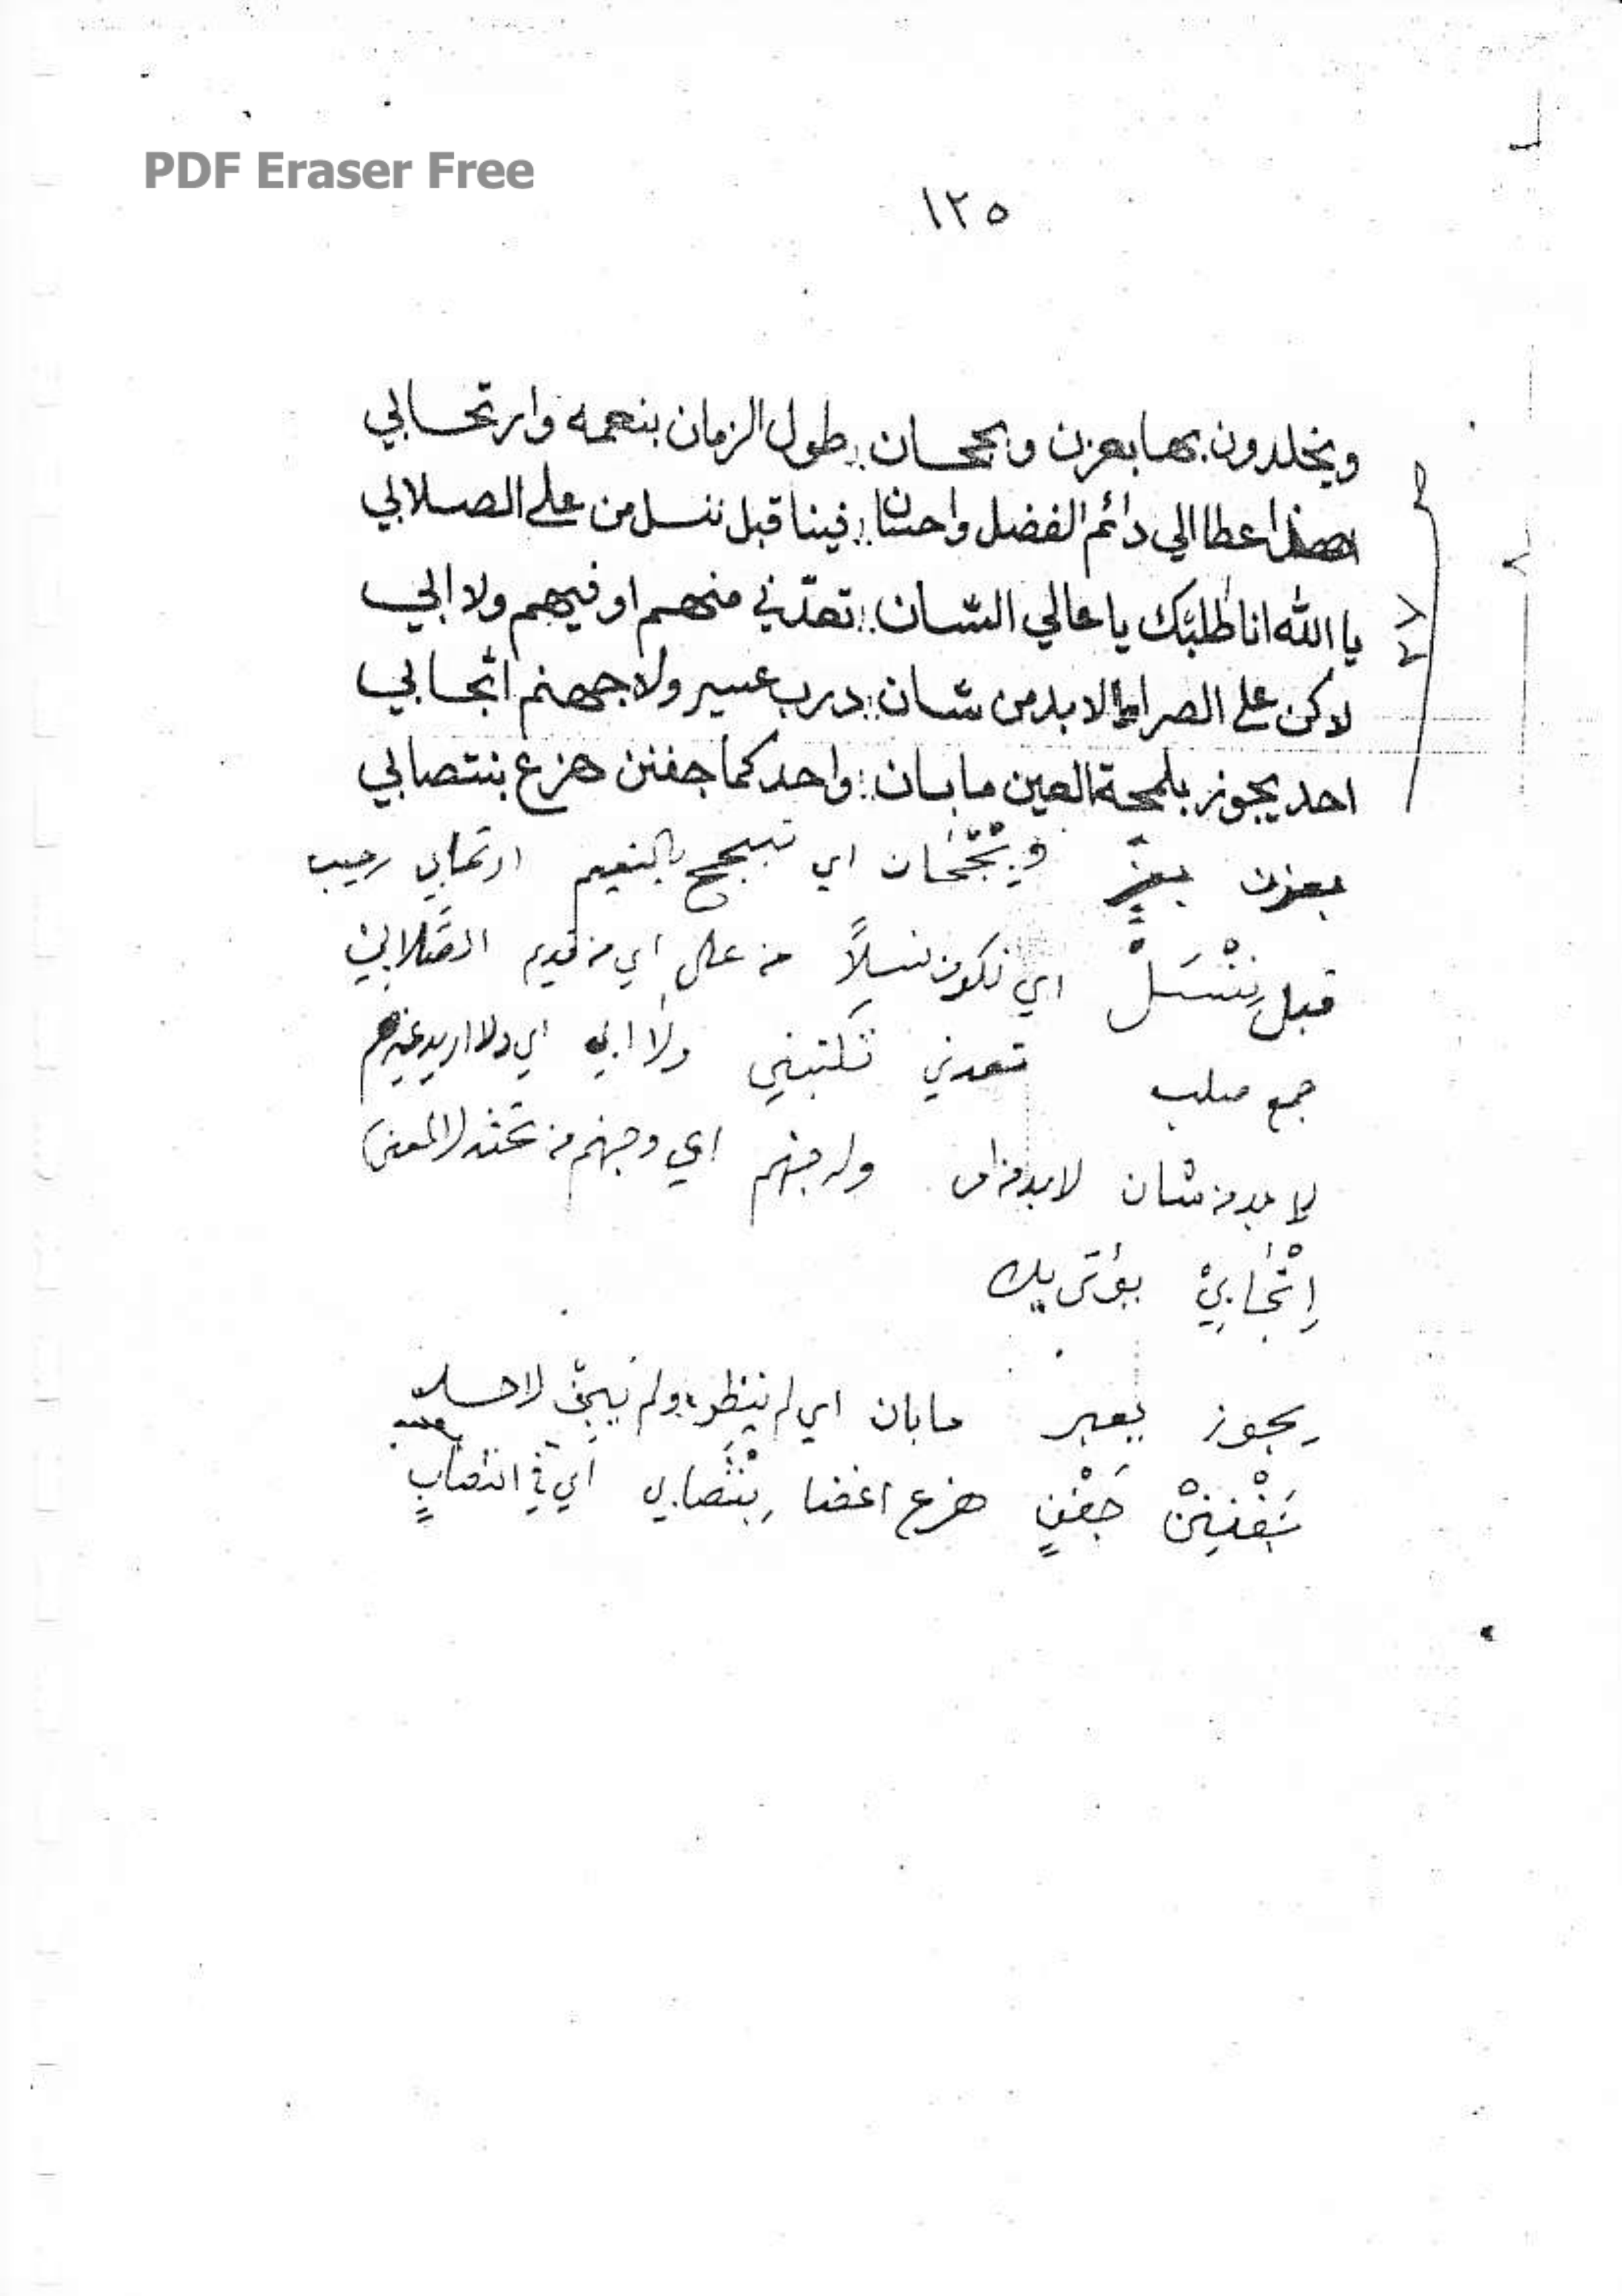 PDF Eraser Free
١٢٥
ويخلدون بها بعزن وبححان :: طول الزمان بنعمه وارتحابي
هذا عطا الي دائم الفضل واحسان :: فينا قبل ننسل من على الصلابي
يا الله انا طلبتك يا عالي الشان :: تعدّني منهم او فيهم ولا ابي
لاكن على الصراط لابد من شان :: درب عسير ولا جهنم اتجابي
احد يجوز بلمحة العين مابان :: واحد كما جفنن هزع بنتصابي
بعزن بعزٍ اي تبحبح بالنعيم ارتحابي رحيب
قبل نِنْسَلْ اي نكون نسلاً من على اي من قديم الصَّلابيْ
جمع صلب تعدني تكتبني ولا ابي اي ولا اريد غيرهم
لا بد من شان لا بد من امر اي وجهنم من تحته (المعنى)
اِتْجابيْ
يجوز يعبر مابان اي لم ينظر ولم
جَفْنٍ هزع اغضا بِنْتَصابي اي في انتصابٍ